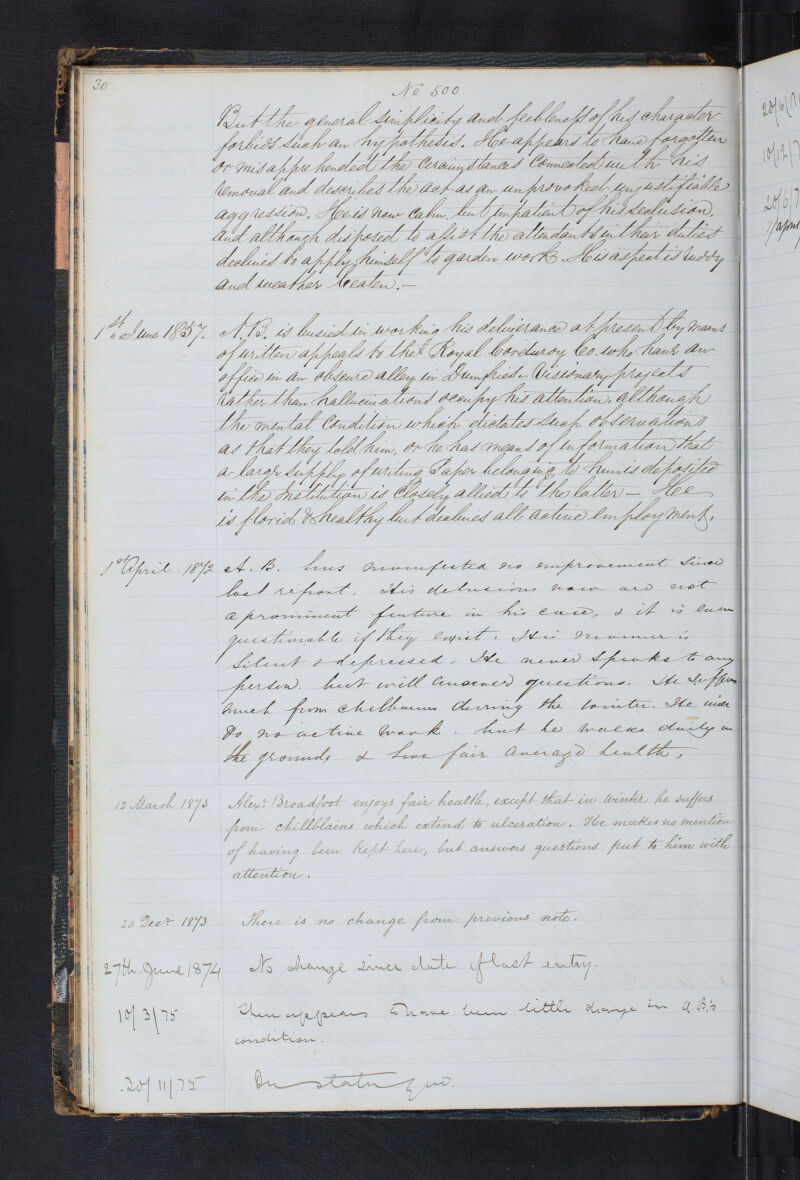 30
No 500.
But the general simplicity and feebleness of his character
forbids such an hypothesis. He appears to have forgotten
or misapprehended the Circumstances Connected with his
removal and describes the act as an unprovoked unjustifiable
aggression. He is now Calm, but impatient of his seclusion,
and although disposed to assist the attendants in their duties
declines to apply himself to garden work. His aspect is ruddy
and weather beaten.–
1st June 1857. A. B. is busied in working his deliverance at present by means
of written appeals to the Royal Corduroy Co. who have an
office in an obscure alley in Dumfries. Visionary projects
rather than hallucinations occupy his attention, although
the mental Condition which dictates such observations
as that they told him, or he has means of information that
a large supply of writing Paper belonging to him is deposited
in the Institution is Closely allied to the latter – He
is florid & healthy but declines all active employment.
1st April 1872 A. B. has manifested no improvement since
last report. His delusions now are not
a prominent feature in his case, & it is even
questionable if they exist. His manner is
silent & depressed. He never speaks to any
person but will answer questions. He suffers
much from chilblains during the winter. He will
do no active work but he walks daily in
the grounds & has fair average health.
12 March 1873 Alexr Broadfoot enjoys fair health, except that in winter he suffers
from chillblains which extend to ulceration. He makes no mention
of having been kept here, but answers questions put to him with
attention.
20 Decr 1873 There is no change from previous note.
27th June 1874 No change since date of last entry.
10/3/75 There appears to have been little change in A.B.'s
condition.
30/11/75 In statu quo.
20/6/7
10/12/7
20/6/7